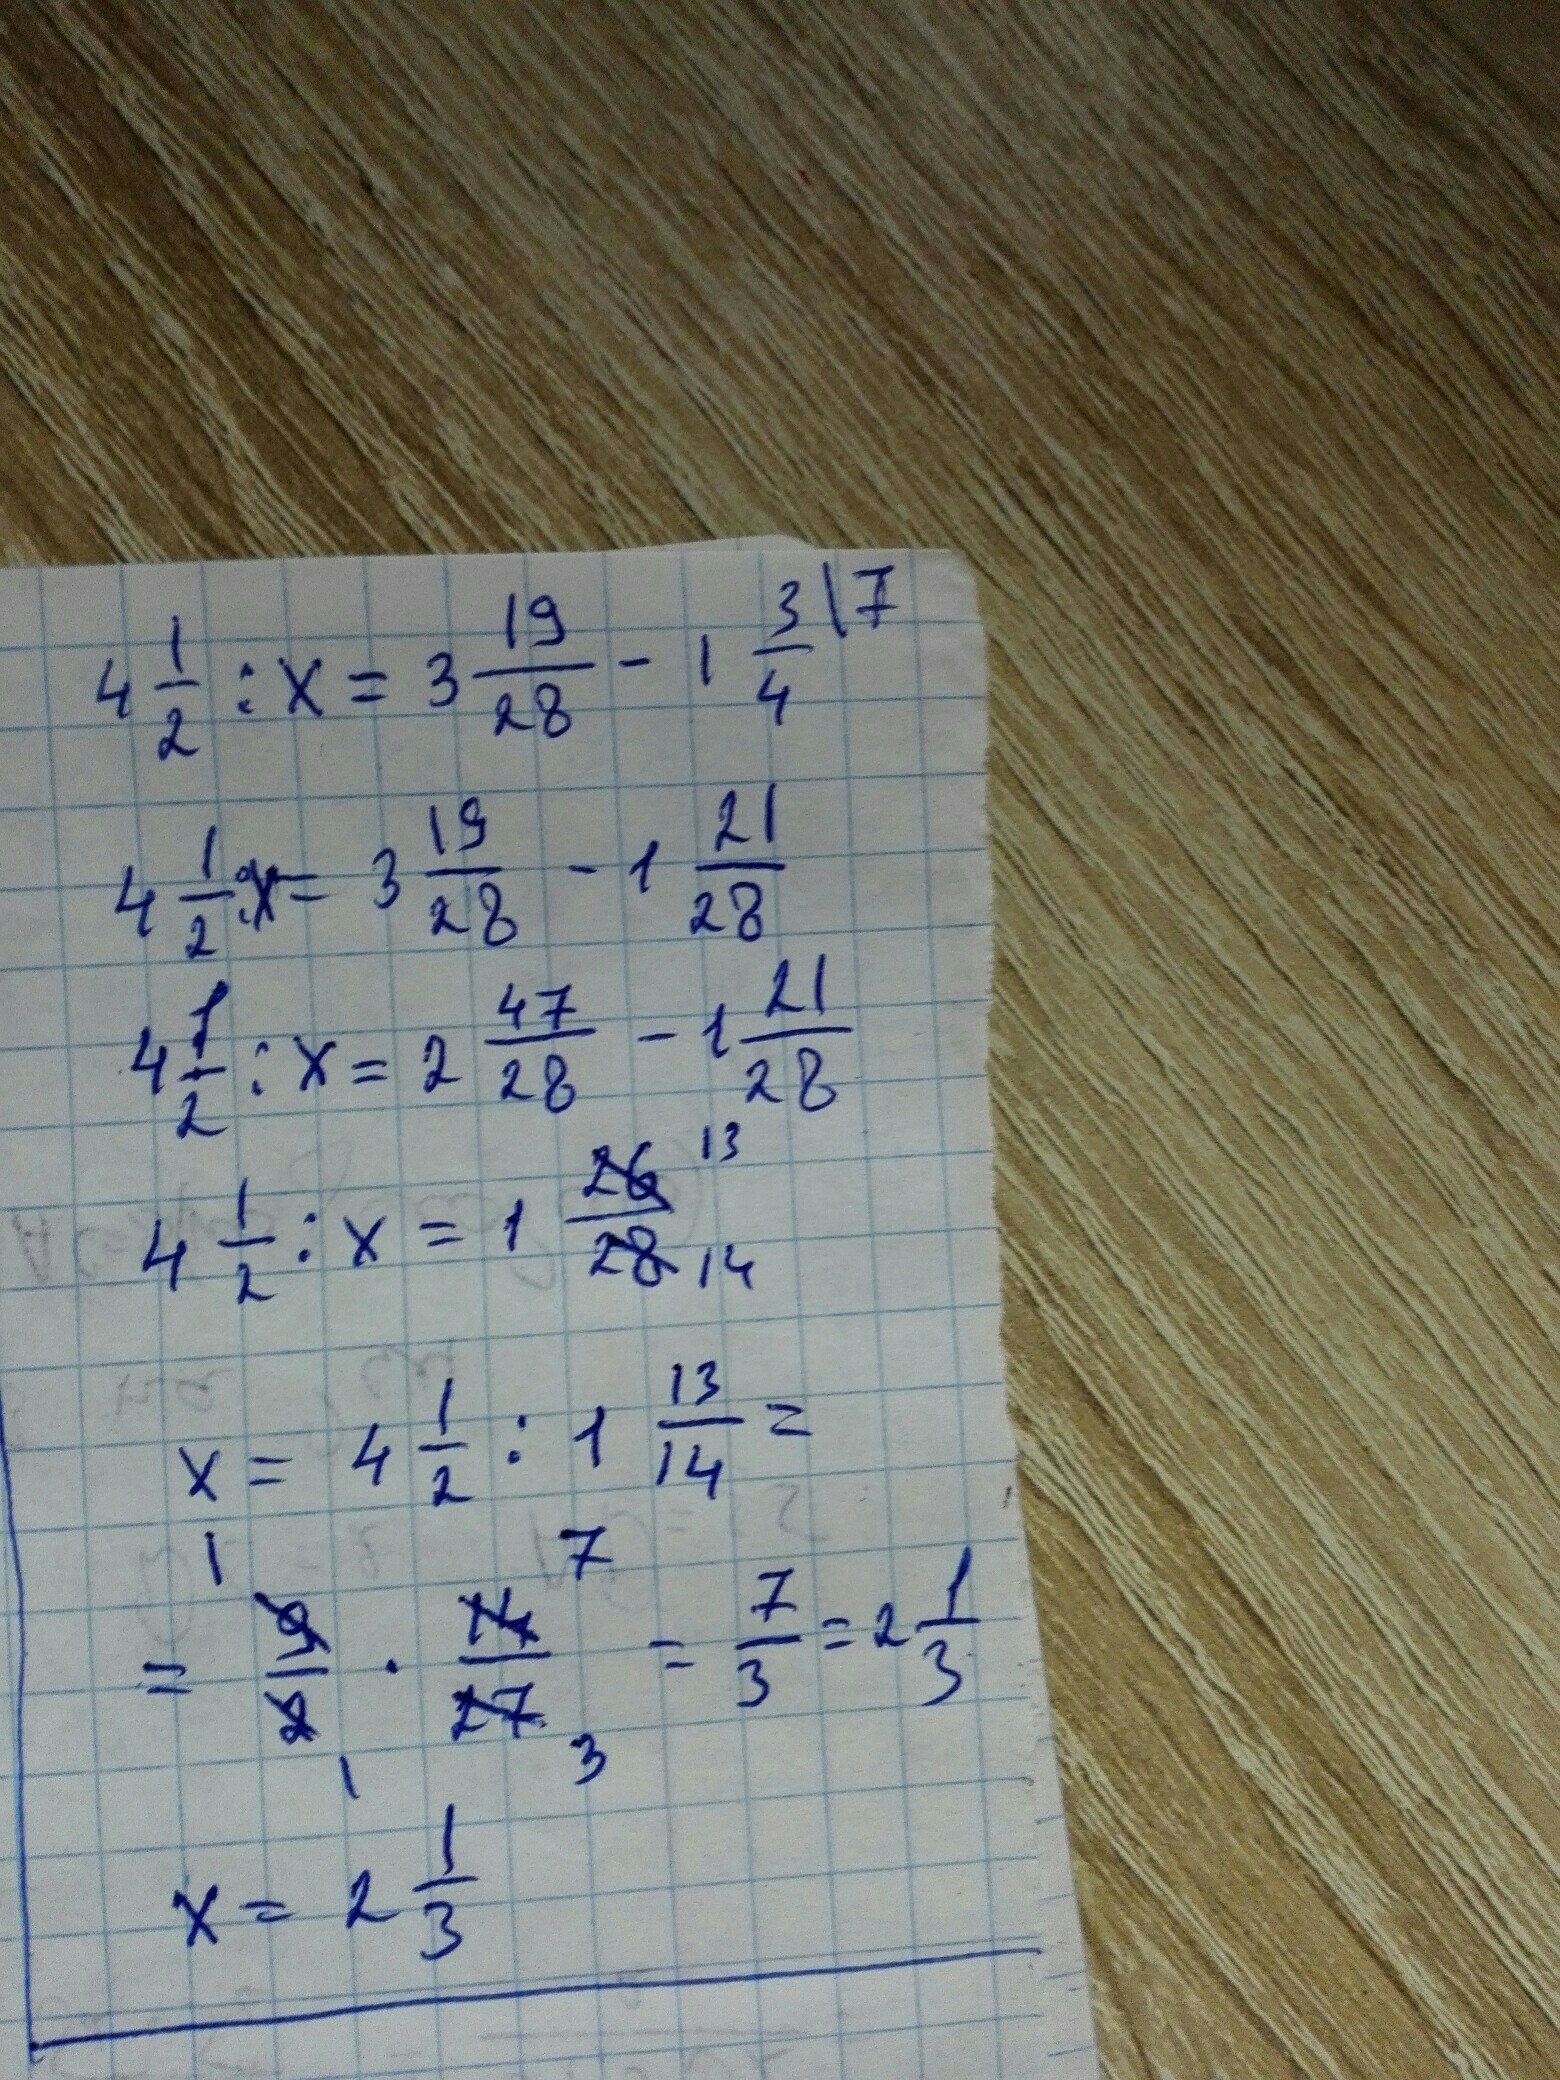 4 1/2 : x = 3 19/28 - 1 3/4 \7
4 1/2 : x = 3 19/28 - 1 21/28
4 1/2 : x = 2 47/28 - 1 21/28
4 1/2 : x = 1 26/28 13 14
x = 4 1/2 : 1 13/14 =
1 7
= 9/2 · 14/27 = 7/3 = 2 1/3
1 3
x = 2 1/3